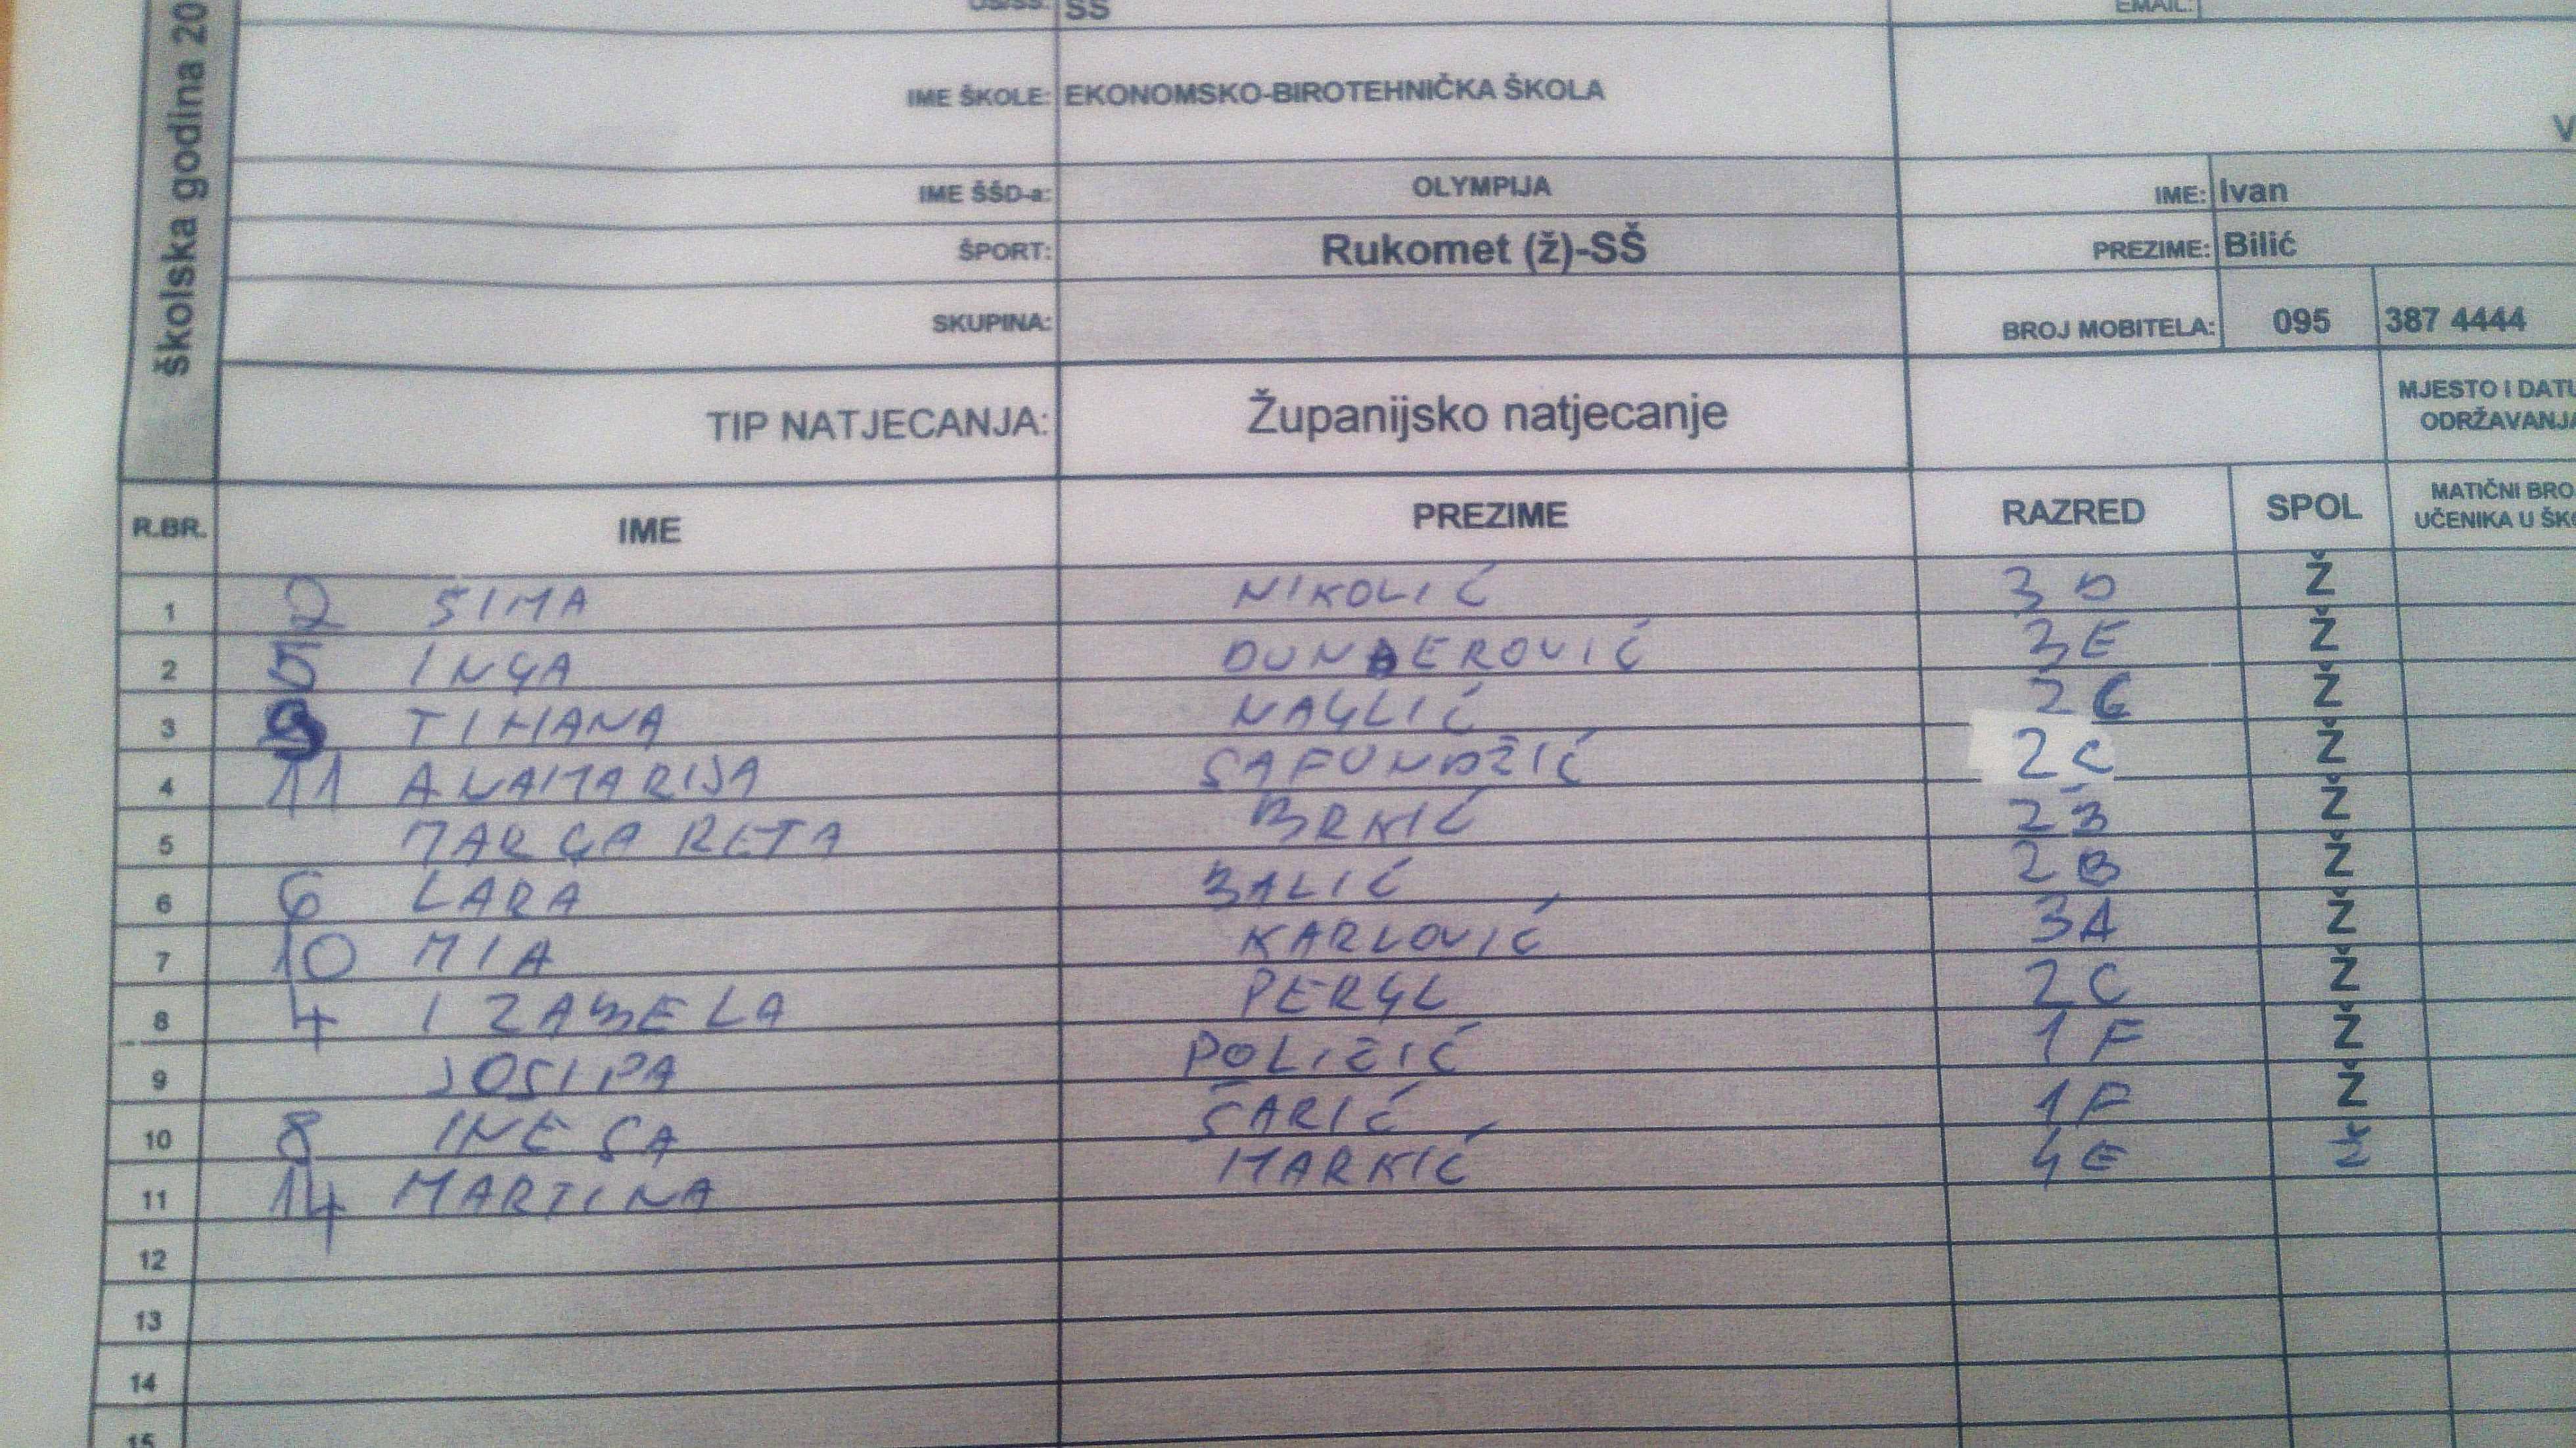 školska godina 20
OŠ/SŠ: SŠ EMAIL:
IME ŠKOLE: EKONOMSKO-BIROTEHNIČKA ŠKOLA
IME ŠŠD-a: OLYMPIJA IME: Ivan
ŠPORT: Rukomet (ž)-SŠ PREZIME: Bilić
SKUPINA: BROJ MOBITELA: 095 387 4444
TIP NATJECANJA: Županijsko natjecanje MJESTO I DATU
ODRŽAVANJA
R.BR. IME PREZIME RAZRED SPOL MATIČNI BRO
UČENIKA U ŠKO
1 2 SIMA NIKOLIĆ 3 D Ž
2 5 INGA DUNĐEROVIĆ 3E Ž
3 TIHANA NAGLIĆ 2C Ž
4 11 ANAMARIJA SAFUNDŽIĆ 2C Ž
5 MARGARETA BRKIĆ 2B Ž
6 6 LARA BALIĆ 2B Ž
7 10 MIA KARLOVIĆ 3A Ž
8 4 IZABELA PERGL 2C Ž
9 JOSIPA POLIZIĆ 1F Ž
10 8 INESA ŠARIĆ 1F Ž
11 14 MARTINA MARKIĆ 4E Ž
12
13
14
15